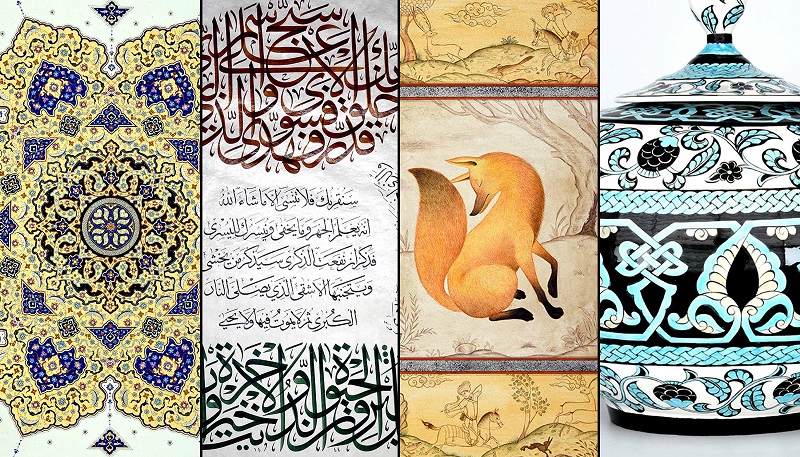 سبح اسم ربك الأعلى
خلق فسوى والذي
قدر فهدى
سنقرئك فلا تنسى الا ما شاء الله
انه يعلم الجهر وما يخفى ونيسرك لليسرى
فذكر ان نفعت الذكرى سيذكر من يخشى
ويتجنبها الاشقى الذي يصلى النار
الكبرى ثم لا يموت فيها ولا يحيى
الحيوة الدنيا والآخرة خير